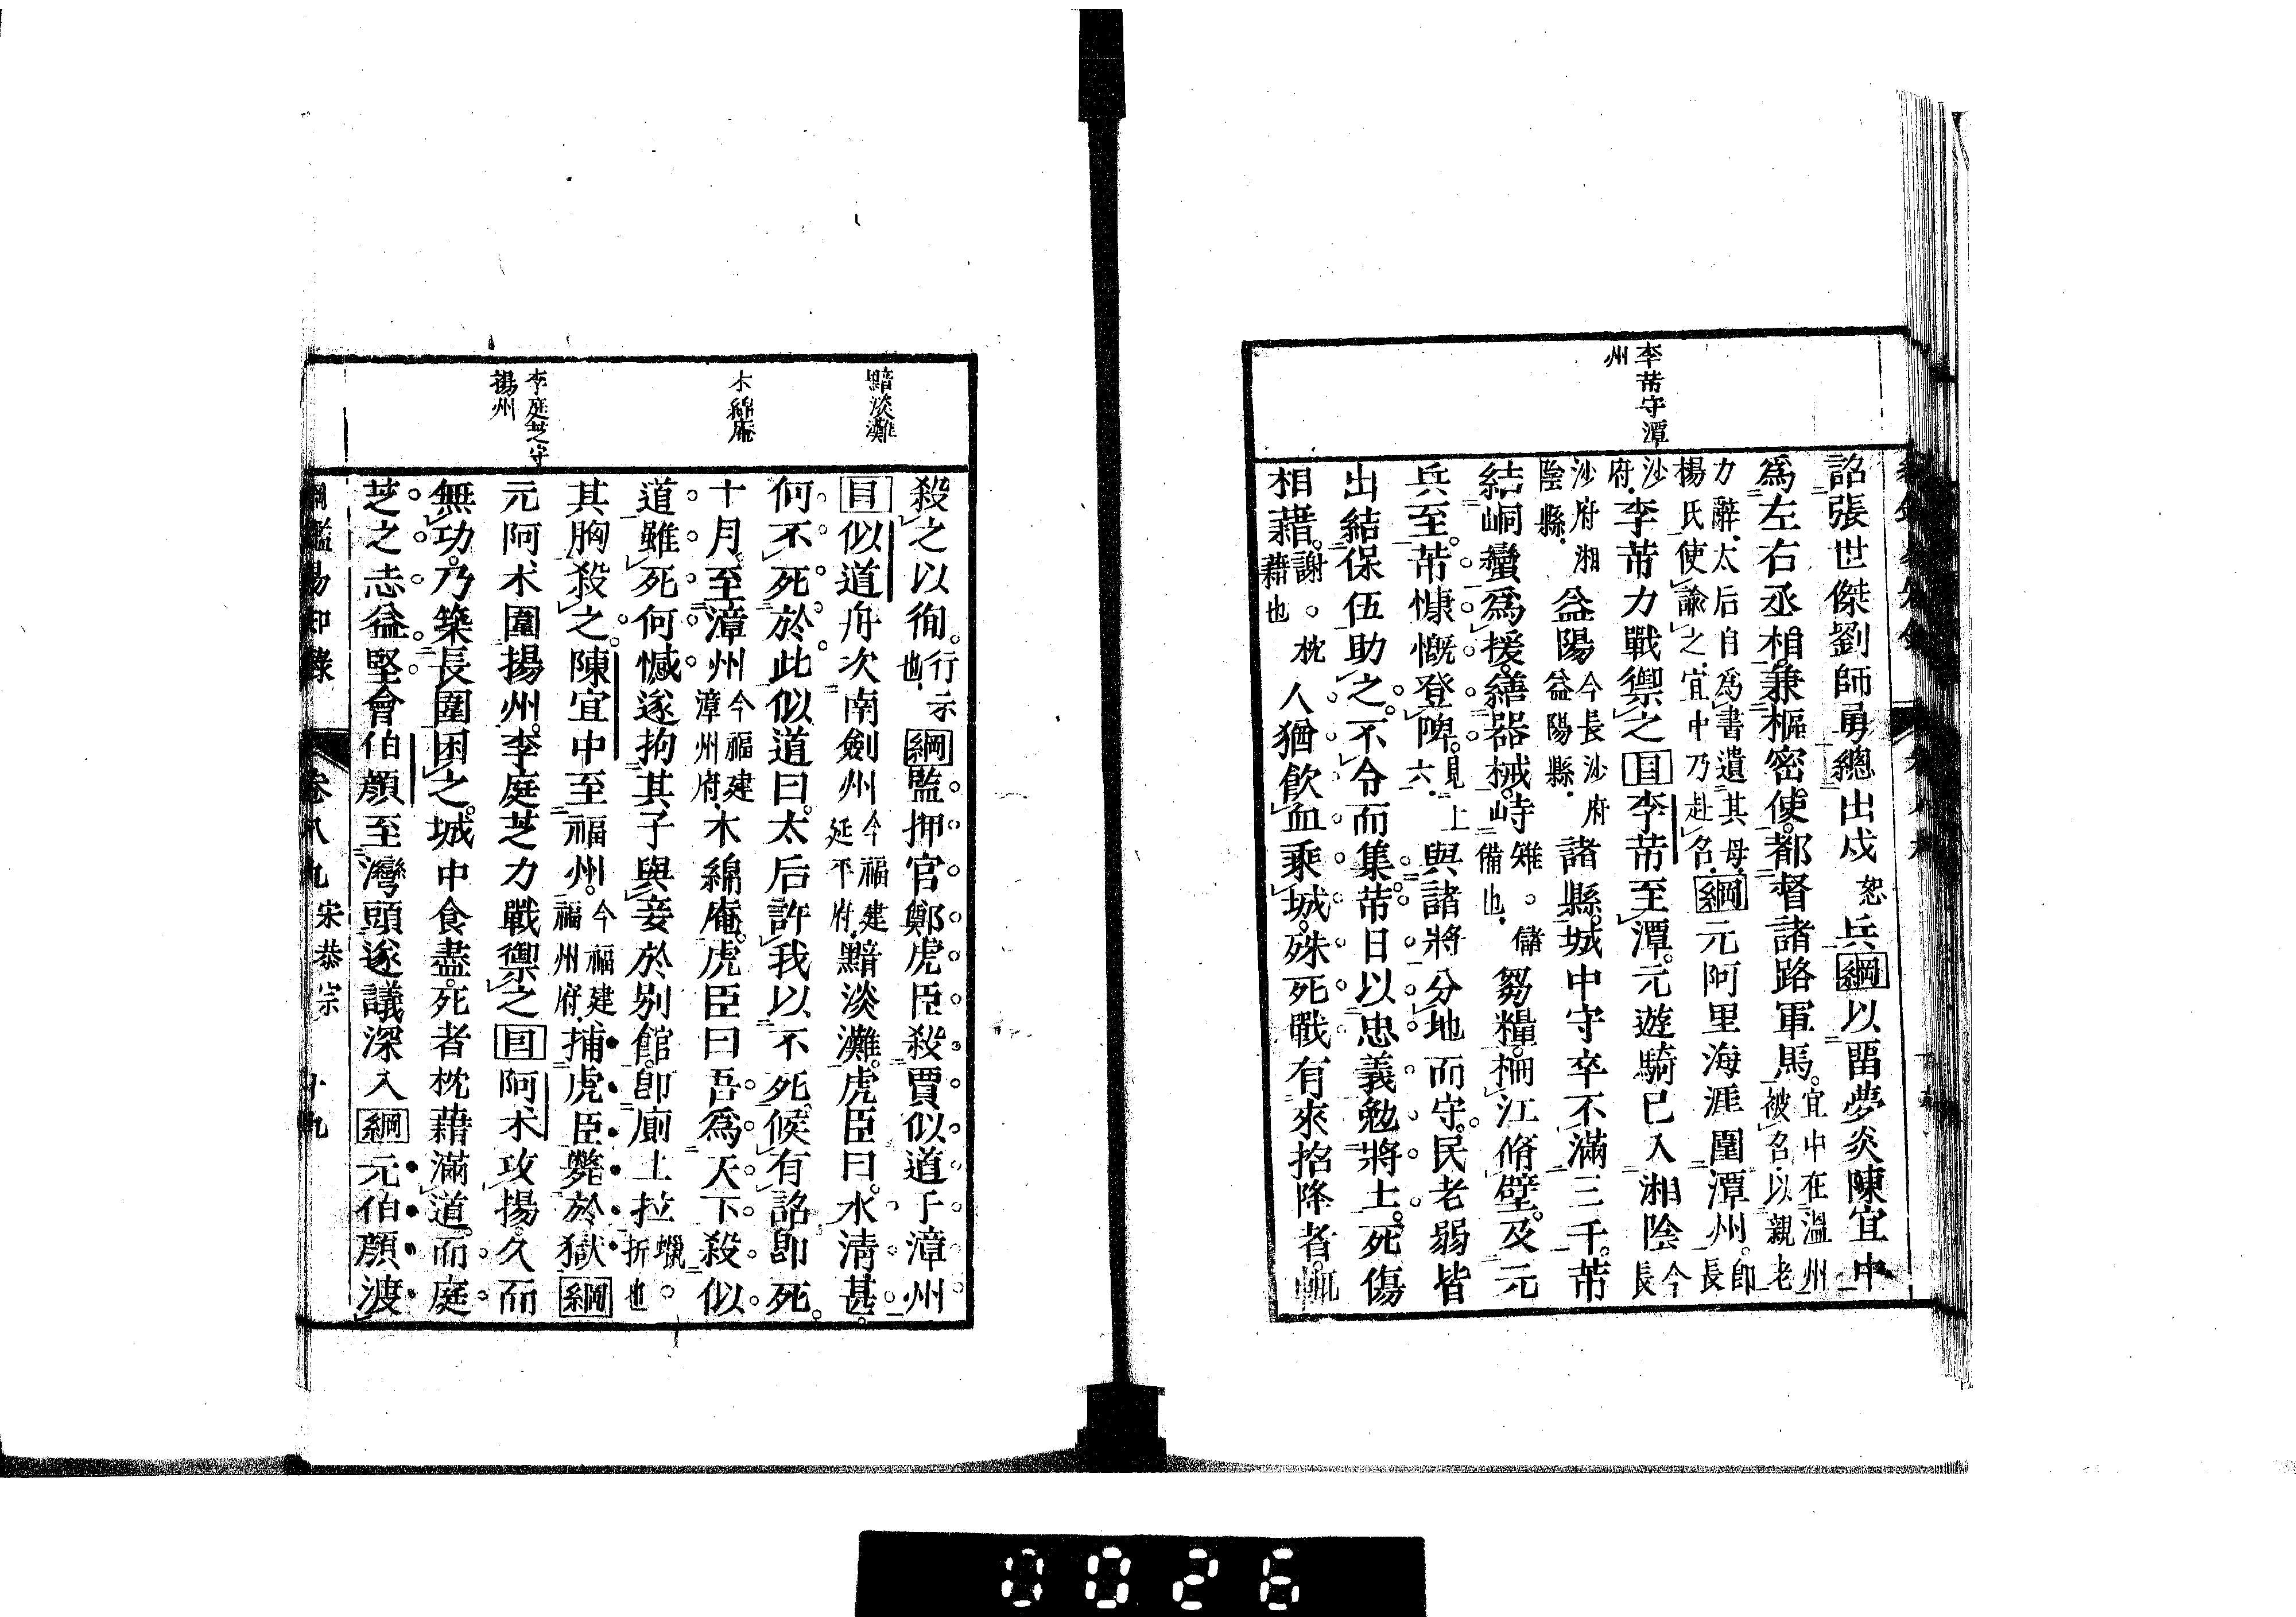 李芾守潭
州
詔張世傑劉師勇總出戍兵綱以畱夢炎陳宜中
爲左右丞相兼樞密使都督諸路軍馬宜中在溫州被召以親老
力辭太后自爲書遺其母楊氏使諭之宜中乃赴召綱元阿里海涯圍潭州卽長
沙府李芾力戰禦之目李芾至潭元遊騎已入湘陰今長
沙府湘陰縣益陽今長沙府益陽縣諸縣城中守卒不滿三千芾
結峒蠻爲援繕器械峙雉儲備也芻糧柵江脩壁及元
兵至芾慷慨登陴見上六與諸將分地而守民老弱皆
出結保伍助之不令而集芾日以忠義勉將士死傷
相藉謝枕藉也人猶飲血乘城殊死戰有來招降者輒
黯淡灘
木綿庵
李庭芝守
揚州
殺之以徇行示也綱監押官鄭虎臣殺賈似道于漳州
目似道舟次南劍州今福建延平府黯淡灘虎臣曰水淸甚
何不死於此似道曰太后許我以不死候有詔卽死
十月至漳州今福建漳州府木綿庵虎臣曰吾爲天下殺似
道雖死何憾遂拘其子與妾於別館卽廁上拉蠟折也
其胸殺之陳宜中至福州今福建福州府捕虎臣斃於獄綱
元阿朮圍揚州李庭芝力戰禦之目阿朮攻揚久而
無功乃築長圍困之城中食盡死者枕藉滿道而庭
芝之志益堅會伯顏至灣頭遂議深入綱元伯顏渡
綱鑑易知錄 卷八九 宋恭宗 十九